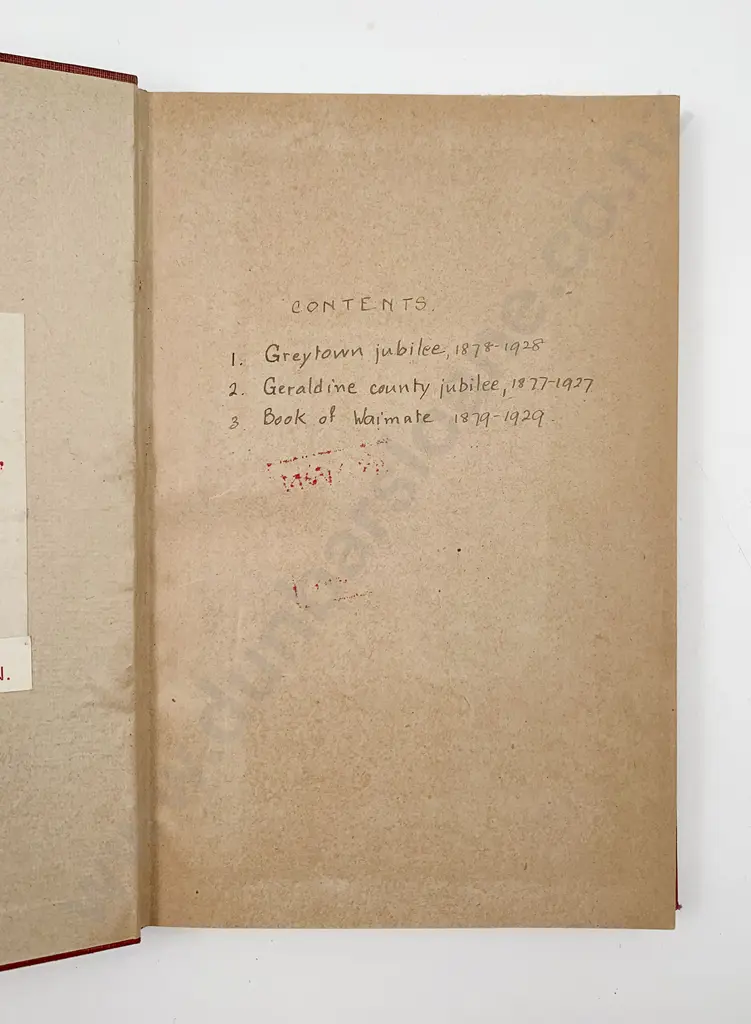 CONTENTS.
1. Greytown jubilee, 1878-1928
2. Geraldine county jubilee, 1877-1927
3 Book of Waimate 1879-1929.
N.